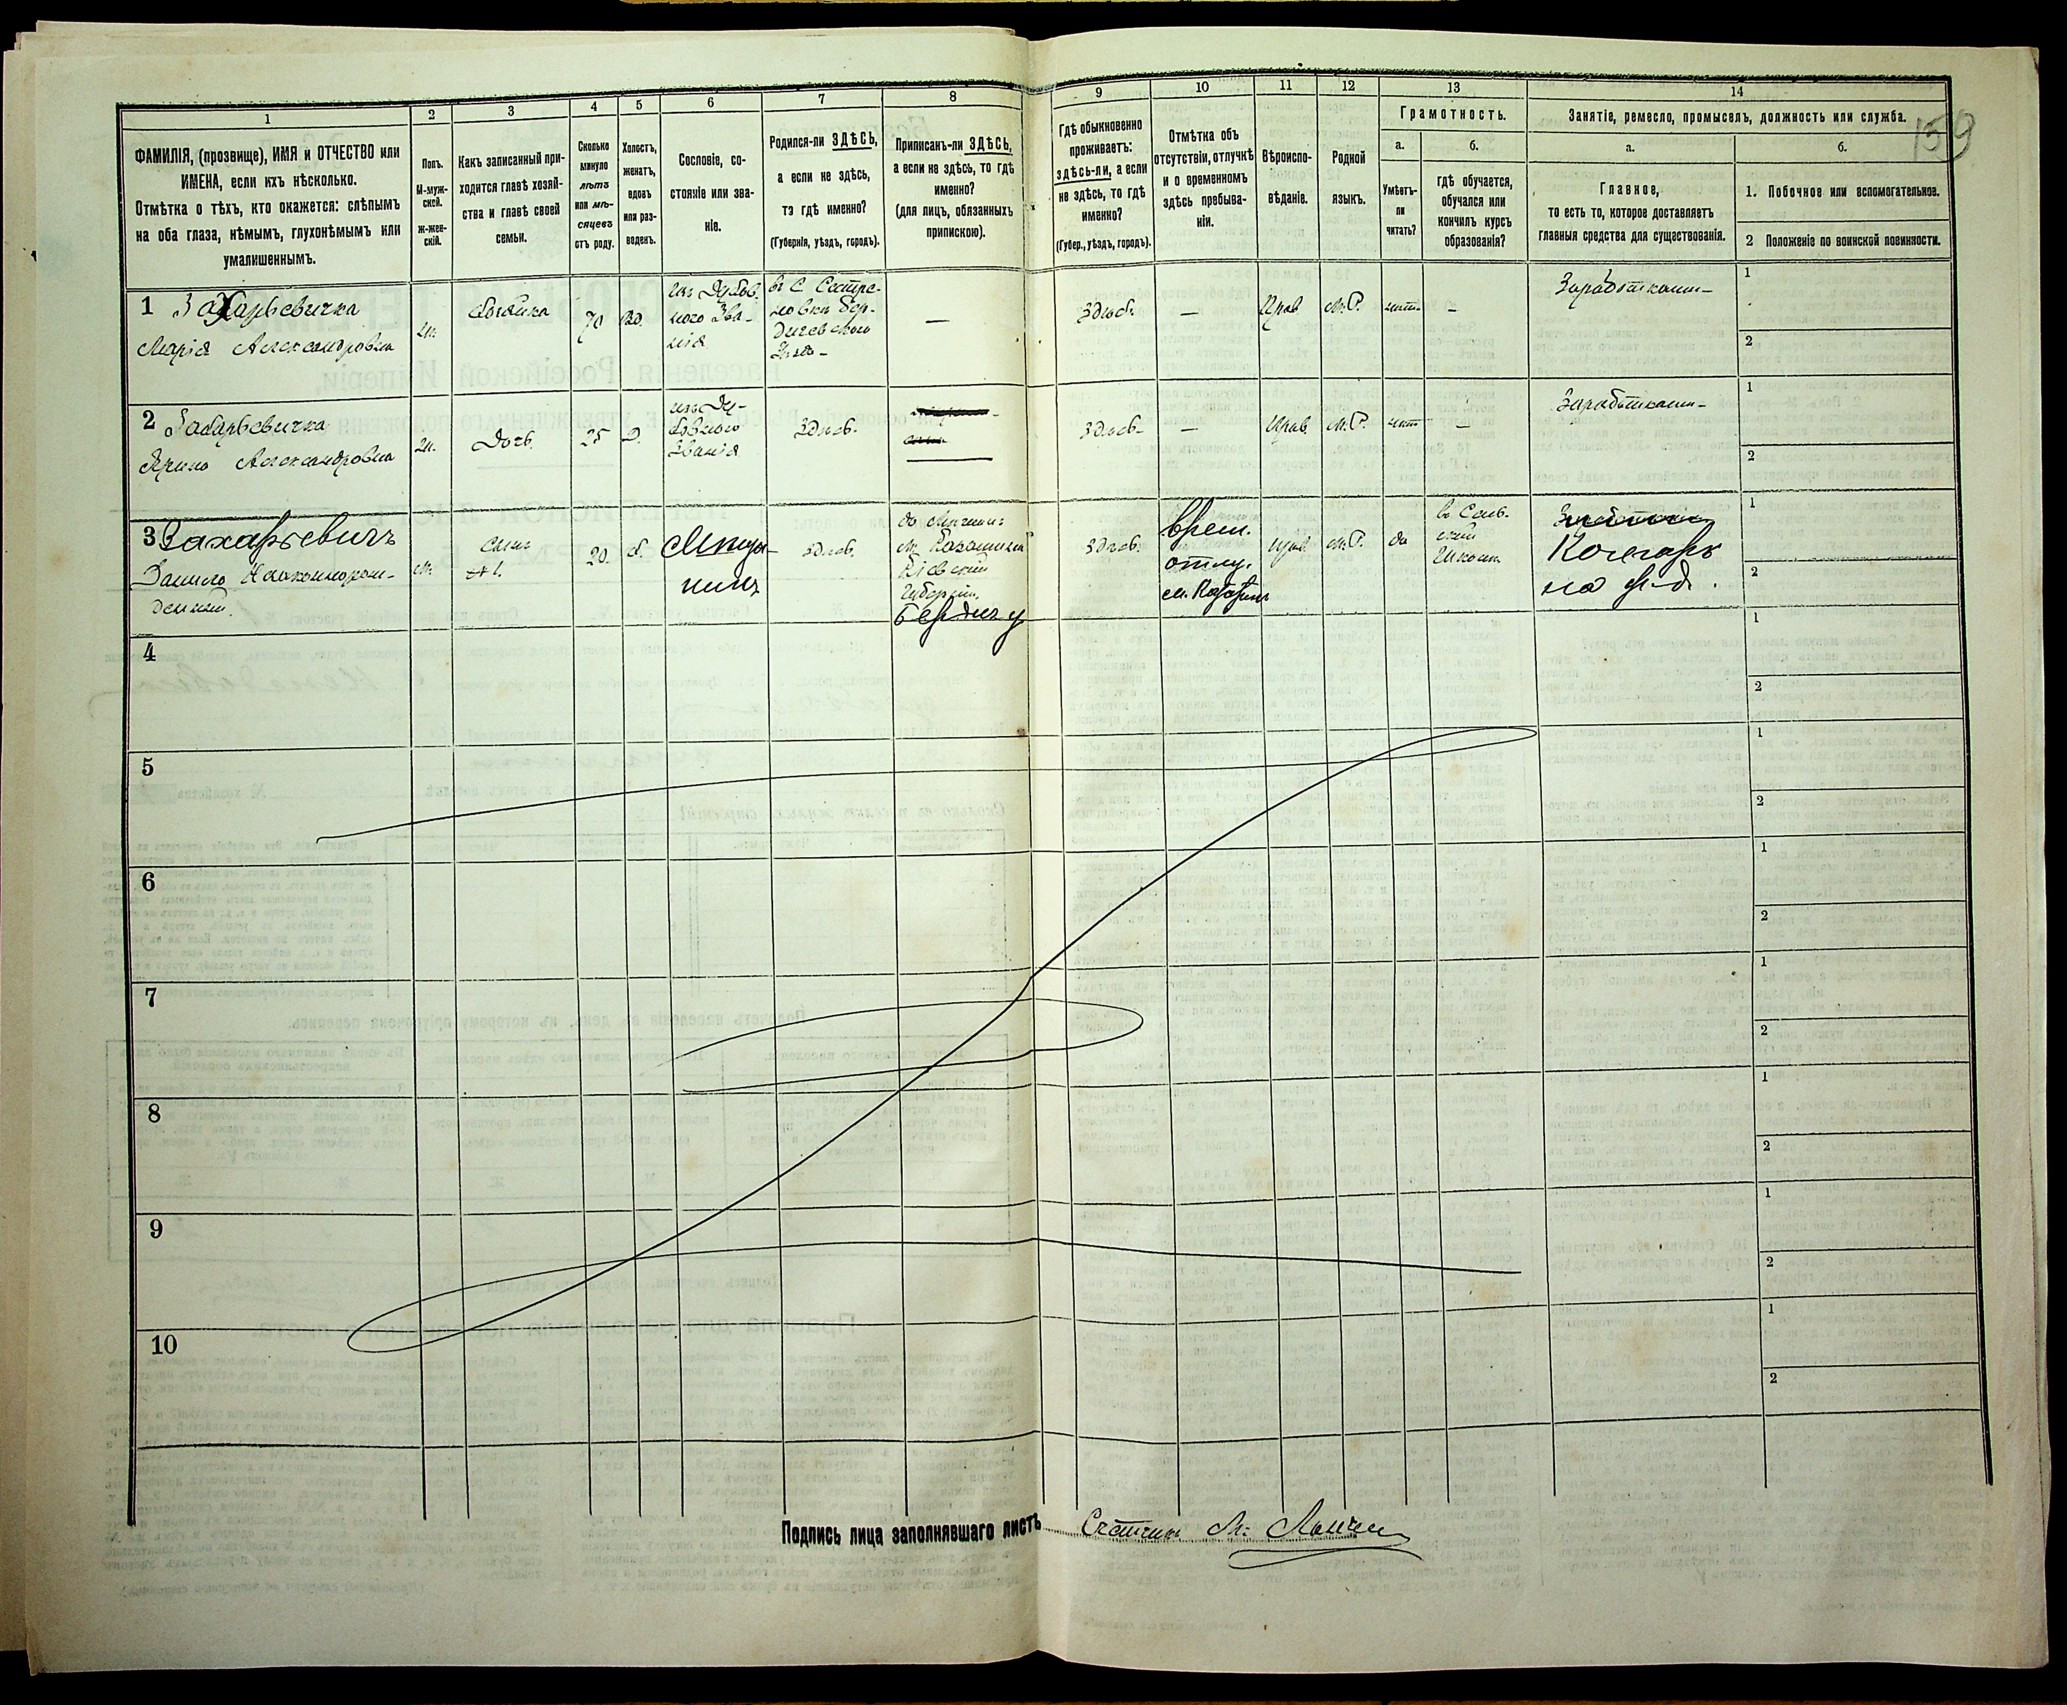 159
1
ФАМИЛІЯ, (прозвище), ИМЯ и ОТЧЕСТВО или
ИМЕНА, если ихъ нѣсколько.
Отмѣтка о тѣхъ, кто окажется: слѣпымъ
на оба глаза, нѣмымъ, глухонѣмымъ или
умалишеннымъ.
2
Полъ.
М-муж-
ской.
ж-жен-
скій.
3
Какъ записанный при-
ходится главѣ хозяй-
ства и главѣ своей
семьи.
4
Сколько
минуло
лѣтъ
или мѣ-
сяцевъ
отъ роду.
5
Холостъ,
женатъ,
вдовъ
или раз-
веденъ.
6
Сословіе, со-
стояніе или зва-
ніе.
7
Родился-ли ЗДѢСЬ,
а если не здѣсь,
то гдѣ именно?
(Губернія, уѣздъ, городъ).
8
Приписанъ-ли ЗДѢСЬ,
а если не здѣсь, то гдѣ
именно?
(для лицъ, обязанныхъ
припискою).
9
Гдѣ обыкновенно
проживаетъ:
здѣсь-ли, а если
не здѣсь, то гдѣ
именно?
(Губер., уѣздъ, городъ).
10
Отмѣтка объ
отсутствіи, отлучкѣ
и о временномъ
здѣсь пребыва-
ніи.
11
Вѣроиспо-
вѣданіе.
12
Родной
языкъ.
13
Грамотность.
а.
Умѣетъ-
ли
читать?
б.
гдѣ обучается,
обучался или
кончилъ курсъ
образованія?
14
Занятіе, ремесло, промыселъ, должность или служба.
а.
Главное,
то есть то, которое доставляетъ
главныя средства для существованія.
б.
1. Побочное или вспомогательное.
2 Положеніе по воинской повинности.
1 Захарьевичка
Марія Александровна
ж.
хозяйка
70
вд.
изъ Духов-
ного Зва-
нія
—
Здѣсь
—
Прав
М.Р.
нѣтъ
—
Заработками-
1
2
2 Захарьевичка
Александровна
ж.
Дочь.
25
Д.
изъ Ду-
ховного
Званія
Здѣсь.
Здѣсь-
—
Прав.
М.Р.
нѣтъ
—
Заработками-
1
2
3 Захарьевичъ
м.
сынъ
20.
х.
Мѣща-
нинъ
здѣсь.
Кіевской
Губерніи,
Бердич у
Здѣсь.
врем.
отлуч.
прав.
М.Р.
да
школѣ
Кочегаръ
на ж.д.
1
2
4
1
2
5
1
2
6
1
2
7
1
2
8
1
2
9
1
2
10
1
2
Подпись лица заполнявшаго листъ
Счетчикъ